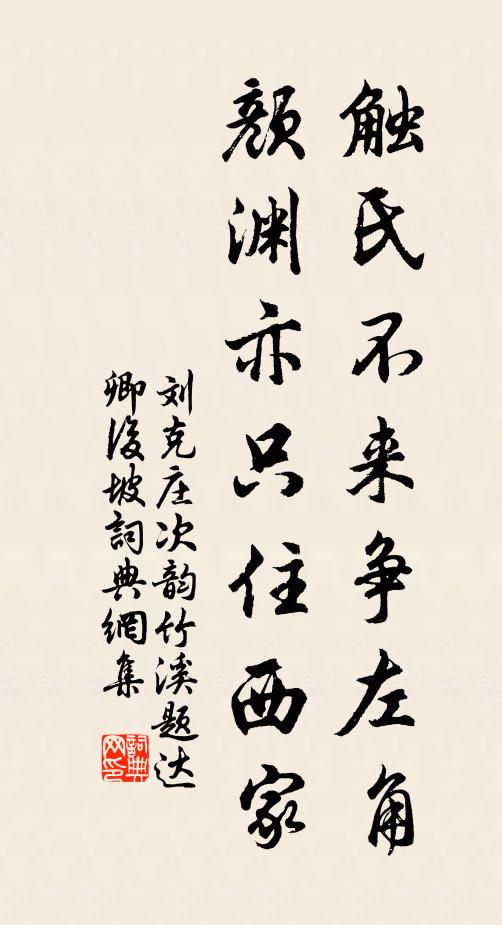 触氏不来争左角
颜渊亦只住西家
刘克庄次韵竹溪题达
卿後坡詞典網集
詞典
网印